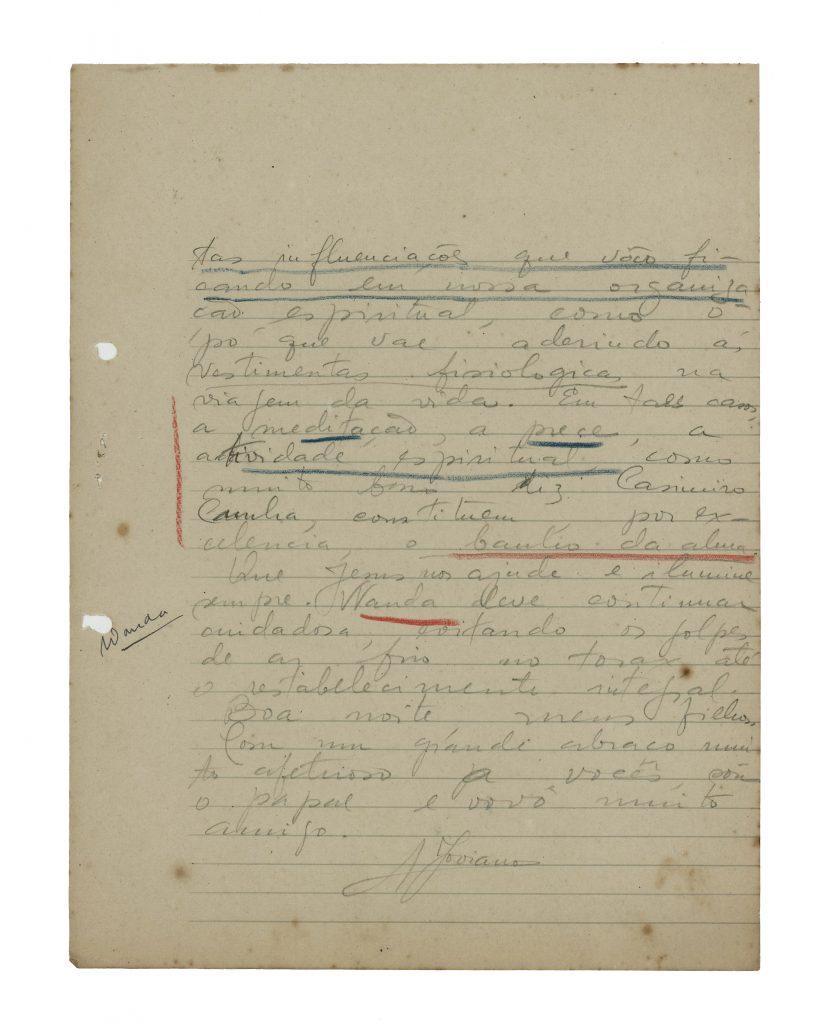 tas influenciações que vão fi-
cando em nossa organiza
ção espiritual, como o
pó que vae aderindo ás
vestimentas fisiologicas na
viagem da vida. Em taes casos,
a meditação, a prece, a
atividade espiritual, como
muito bem diz Casimiro
Cunha, constituem, por ex-
celencia, o banho da alma.
Que Jesus nos ajude e ilumine
sempre. Wanda deve continuar
cuidadosa, evitando os golpes
de ar frio no torax até
o restabelecimento integral.
Boa noite meus filhos.
Com um grande abraço mui-
to afetuoso p. vocês, sou
o papae e vovô muito
amigo.
A Joviano
Wanda